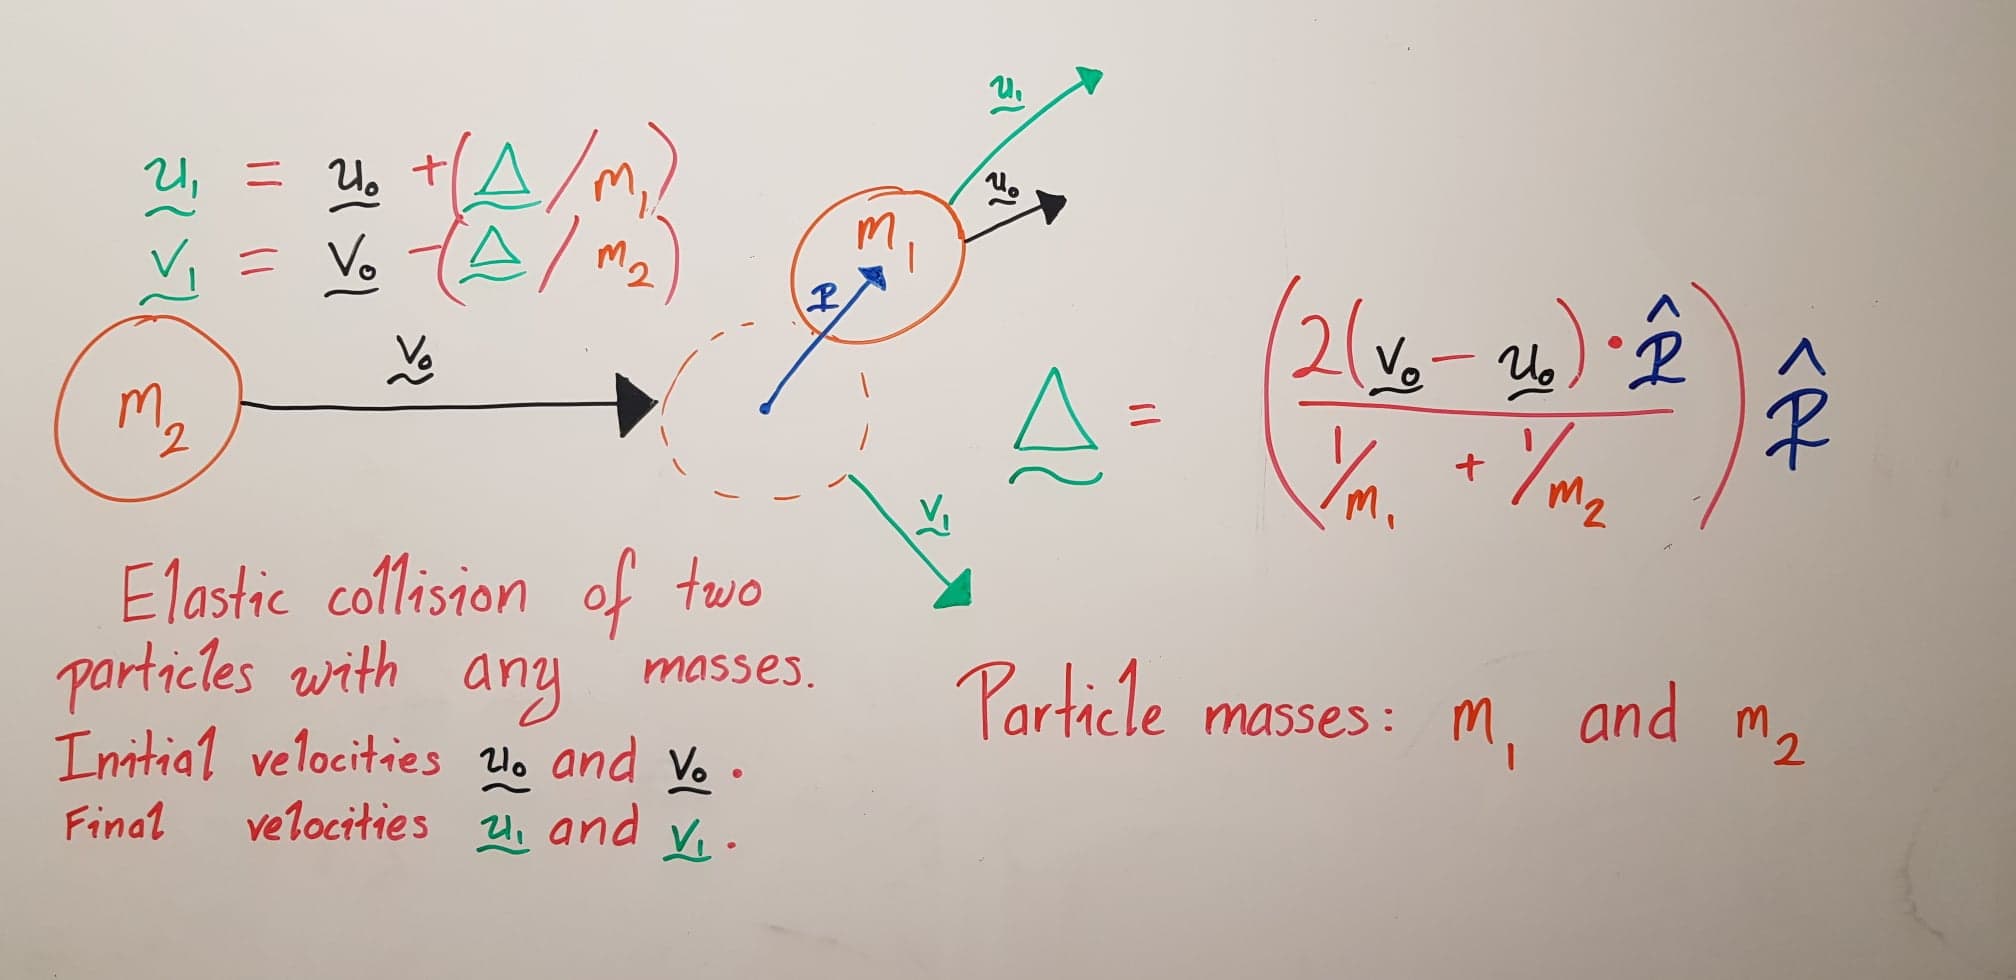 u₁ = u₀ + (Δ/m₁)
v₁ = v₀ - (Δ/m₂)
u₁
u₀
m₁
P
v₀
m₂
v₁
Δ = (2(v₀ - u₀) · P̂ / (1/m₁ + 1/m₂)) P̂
Elastic collision of two
particles with any masses.
Initial velocities u₀ and v₀.
Final velocities u₁ and v₁.
Particle masses: m₁ and m₂